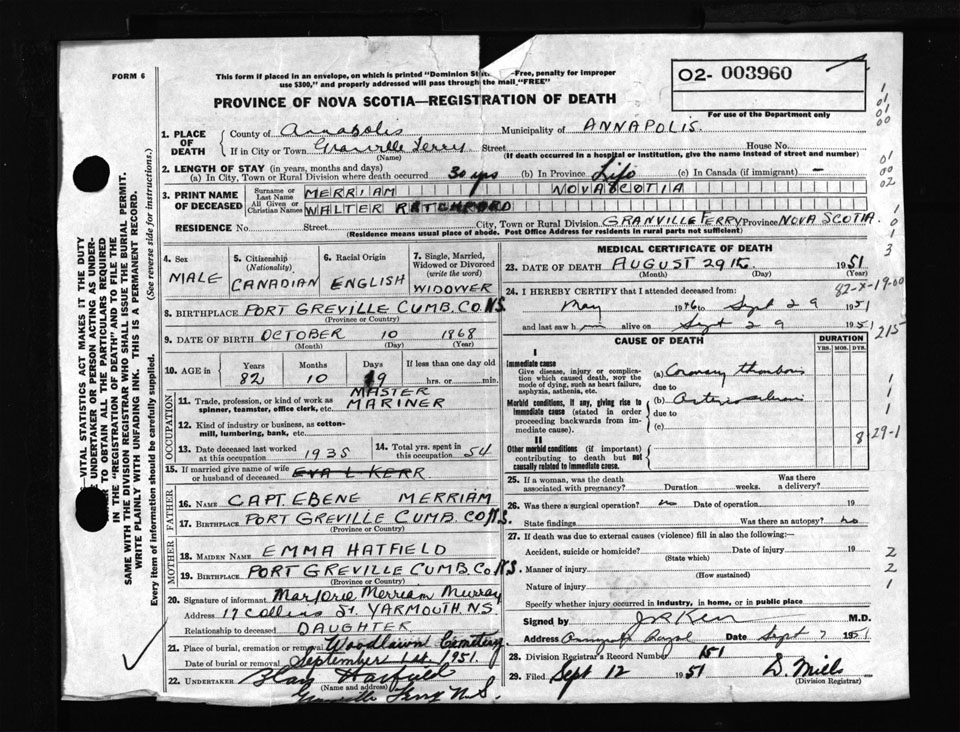 FORM 6
This form if placed in an envelope, on which is printed "Dominion St —Free, penalty for improper
use $300," and properly addressed will pass through the mail "FREE"
O2- 003960
For use of the Department only
PROVINCE OF NOVA SCOTIA—REGISTRATION OF DEATH
1. PLACE OF DEATH
County of Annapolis Municipality of ANNAPOLIS.
If in City or Town Granville Ferry Street House No.
(Name) (If death occurred in a hospital or institution, give the name instead of street and number)
2. LENGTH OF STAY (in years, months and days)
(a) In City, Town or Rural Division where death occurred 30 yrs (b) In Province Life (c) In Canada (if immigrant) —
3. PRINT NAME OF DECEASED
Surname or Last Name MERRIAM NOVA SCOTIA
All Given or Christian Names WALTER RATCHFORD
RESIDENCE No. Street City, Town or Rural Division GRANVILLE FERRY Province NOVA SCOTIA.
(Residence means usual place of abode. Post Office Address for residents in rural parts not sufficient)
4. Sex MALE
5. Citizenship (Nationality) CANADIAN
6. Racial Origin ENGLISH
7. Single, Married, Widowed or Divorced (write the word) WIDOWER
8. BIRTHPLACE PORT GREVILLE CUMB. CO. N.S.
(Province or Country)
9. DATE OF BIRTH OCTOBER 10 1868
(Month) (Day) (Year)
10. AGE in Years 82 Months 10 Days 19 If less than one day old hrs. or min.
OCCUPATION
11. Trade, profession, or kind of work as spinner, teamster, office clerk, etc. MASTER MARINER
12. Kind of industry or business, as cotton-mill, lumbering, bank, etc.
13. Date deceased last worked at this occupation 1935
14. Total yrs. spent in this occupation 54
15. If married give name of wife or husband of deceased EVA L KERR
FATHER
16. NAME CAPT. EBENE MERRIAM
17. BIRTHPLACE PORT GREVILLE CUMB. CO. N.S.
(Province or Country)
MOTHER
18. MAIDEN NAME EMMA HATFIELD
19. BIRTHPLACE PORT GREVILLE CUMB. CO. N.S.
(Province or Country)
20. Signature of informant Marjorie Merriam Murray
Address 17 Collins St. YARMOUTH N.S.
Relationship to deceased DAUGHTER
21. Place of burial, cremation or removal Woodlawn Cemetery
Date of burial or removal September 1st 1951.
22. UNDERTAKER Hatfield
(Name and address)
Granville Ferry N.S.
MEDICAL CERTIFICATE OF DEATH
23. DATE OF DEATH AUGUST 29th 1951
(Month) (Day) (Year)
24. I HEREBY CERTIFY that I attended deceased from:
May 1946 to Sept 29 1951
and last saw him alive on Sept 29 1951
CAUSE OF DEATH
DURATION
YRS. MOS. DYS.
I
Immediate cause
Give disease, injury or complication which caused death, not the mode of dying, such as heart failure, asphyxia, asthenia, etc.
(a) Coronary thrombosis
due to
Morbid conditions, if any, giving rise to immediate cause (stated in order proceeding backwards from immediate cause).
(b) Arteriosclerosis
due to
(c)
II
Other morbid conditions (if important) contributing to death but not causally related to immediate cause.
25. If a woman, was the death associated with pregnancy? Duration weeks. Was there a delivery?
26. Was there a surgical operation? no Date of operation 19
State findings Was there an autopsy? no
27. If death was due to external causes (violence) fill in also the following:—
Accident, suicide or homicide? Date of injury 19
(State which)
Manner of injury
(How sustained)
Nature of injury
Specify whether injury occurred in industry, in home, or in public place
Signed by J R Kerr M.D.
Address Annapolis Royal Date Sept 7 1951
28. Division Registrar's Record Number 151
29. Filed Sept 12 1951
(Division Registrar)
82-X-19-00
215
8-29-1
—VITAL STATISTICS ACT MAKES IT THE DUTY
UNDERTAKER OR PERSON ACTING AS UNDER-
TO OBTAIN ALL THE PARTICULARS REQUIRED
IN THE "REGISTRATION OF DEATH" AND TO FILE THE
SAME WITH THE DIVISION REGISTRAR WHO SHALL ISSUE THE BURIAL PERMIT.
WRITE PLAINLY WITH UNFADING INK. THIS IS A PERMANENT RECORD.
Every item of information should be carefully supplied. (See reverse side for instructions.)